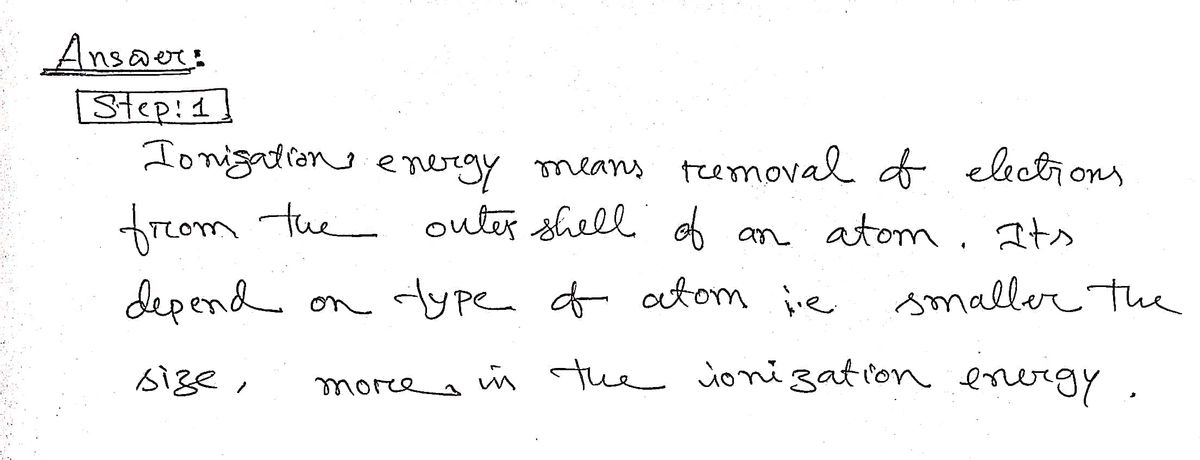 Answer:
Step: 1
Ionization, energy means removal of electrons
from the outer shell of an atom. Its
depend on type of atom i.e smaller the
size, more in the ionization energy.